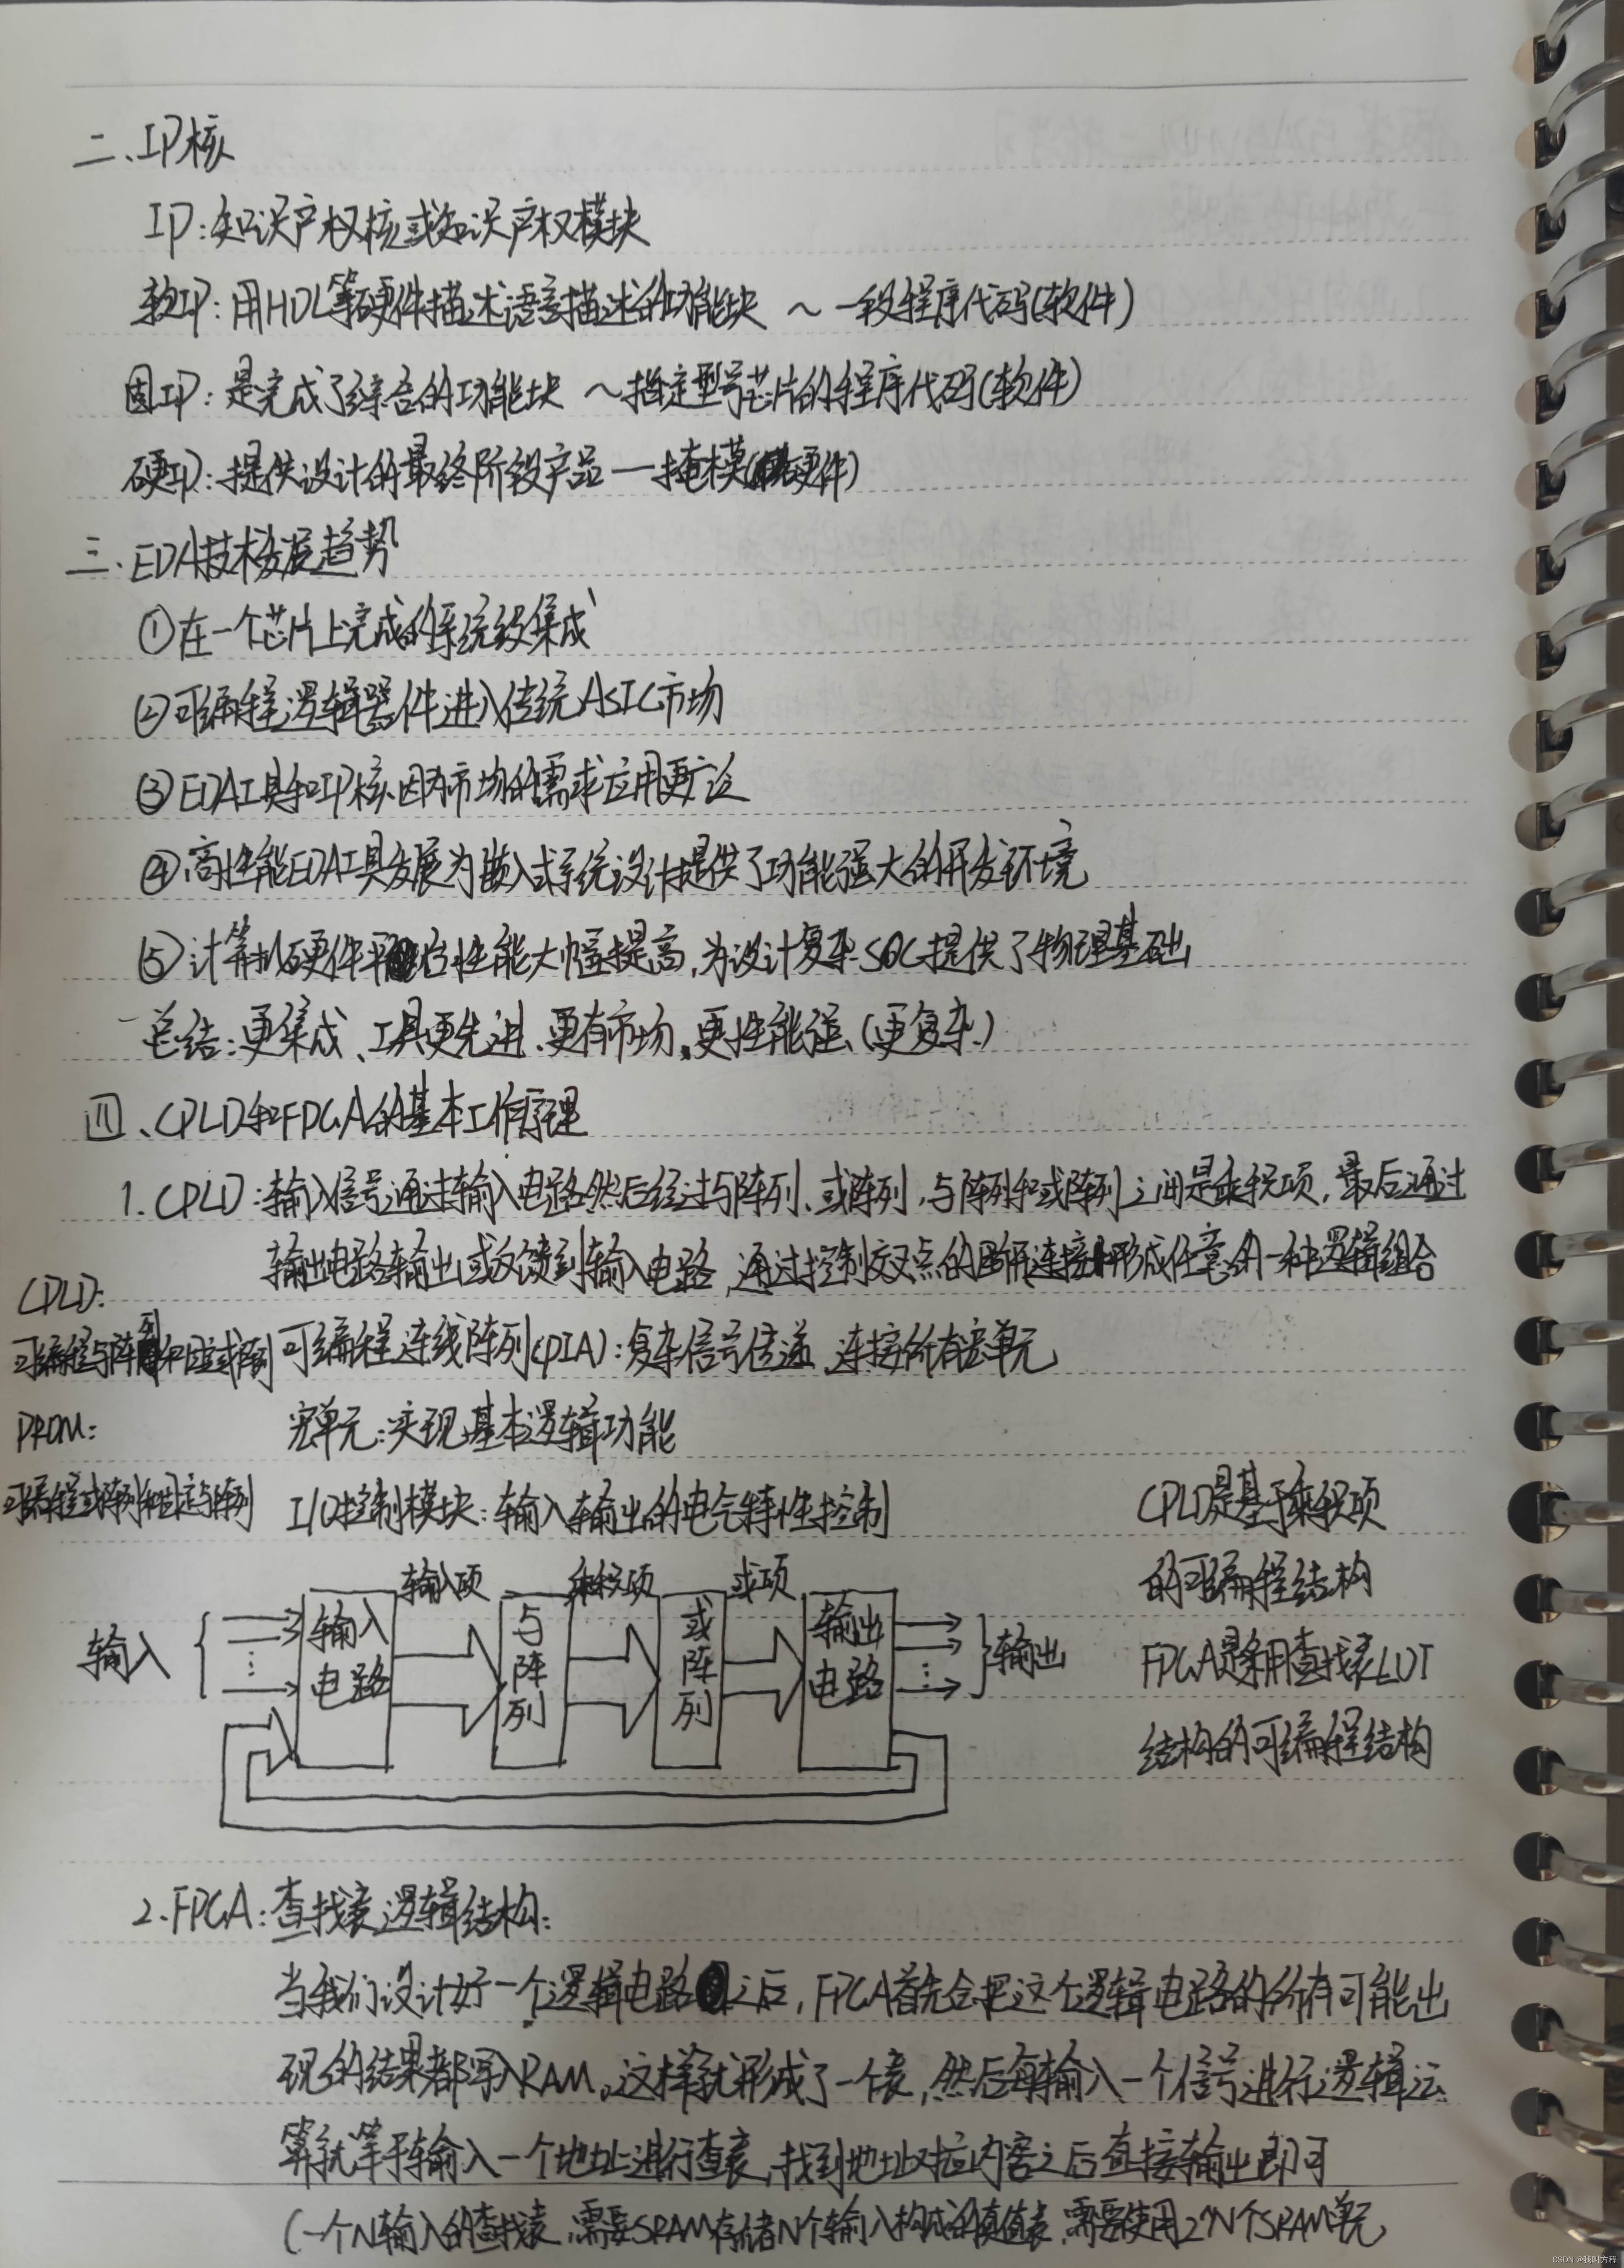 二、IP核
IP:知识产权核或知识产权模块
软IP:用HDL等硬件描述语言描述的功能块 ~ 一段程序代码(软件)
固IP:是完成了综合的功能块 ~指定型号芯片的程序代码(软件)
硬IP:提供设计的最终阶段产品—掩模(硬件)
三、EDA技术发展趋势
①在一个芯片上完成的系统级集成
②可编程逻辑器件进入传统ASIC市场
③EDA工具和IP核因为市场的需求应用更广泛
④高性能EDA工具发展为嵌入式系统设计提供了功能强大的开发环境
⑤计算机硬件平台性能大幅提高,为设计复杂SOC提供了物理基础
总结:更集成、工具更先进、更有市场,更性能强(更复杂)
四、CPLD和FPGA的基本工作原理
1.CPLD:输入信号通过输入电路然后经过与阵列、或阵列,与阵列和或阵列之间是乘积项,最后通过
输出电路输出或反馈到输入电路,通过控制交叉点的断开连接形成任意的一种逻辑组合
CPLD:
可编程与阵列和固定或阵列
可编程连线阵列(PIA):复杂信号传递、连接所有宏单元
PROM:
宏单元:实现基本逻辑功能
可编程或阵列和固定与阵列
I/O控制模块:输入输出的电气特性控制
CPLD是基于乘积项
的可编程结构
FPGA是采用查找表LUT
结构的可编程结构
输入项 乘积项 或项
输入 输入电路 与阵列 或阵列 输出电路 输出
2.FPGA:查找表逻辑结构:
当我们设计好一个逻辑电路之后,FPGA首先会把这个逻辑电路的所有可能出
现的结果都写入RAM,这样就形成了一个表,然后每输入一个信号进行逻辑运
算就等于输入一个地址进行查表,找到地址对应内容之后直接输出即可
(一个N输入的查找表,需要SRAM存储N个输入构成的真值表,需要使用2^N个SRAM单元
CSDN @我叫方程